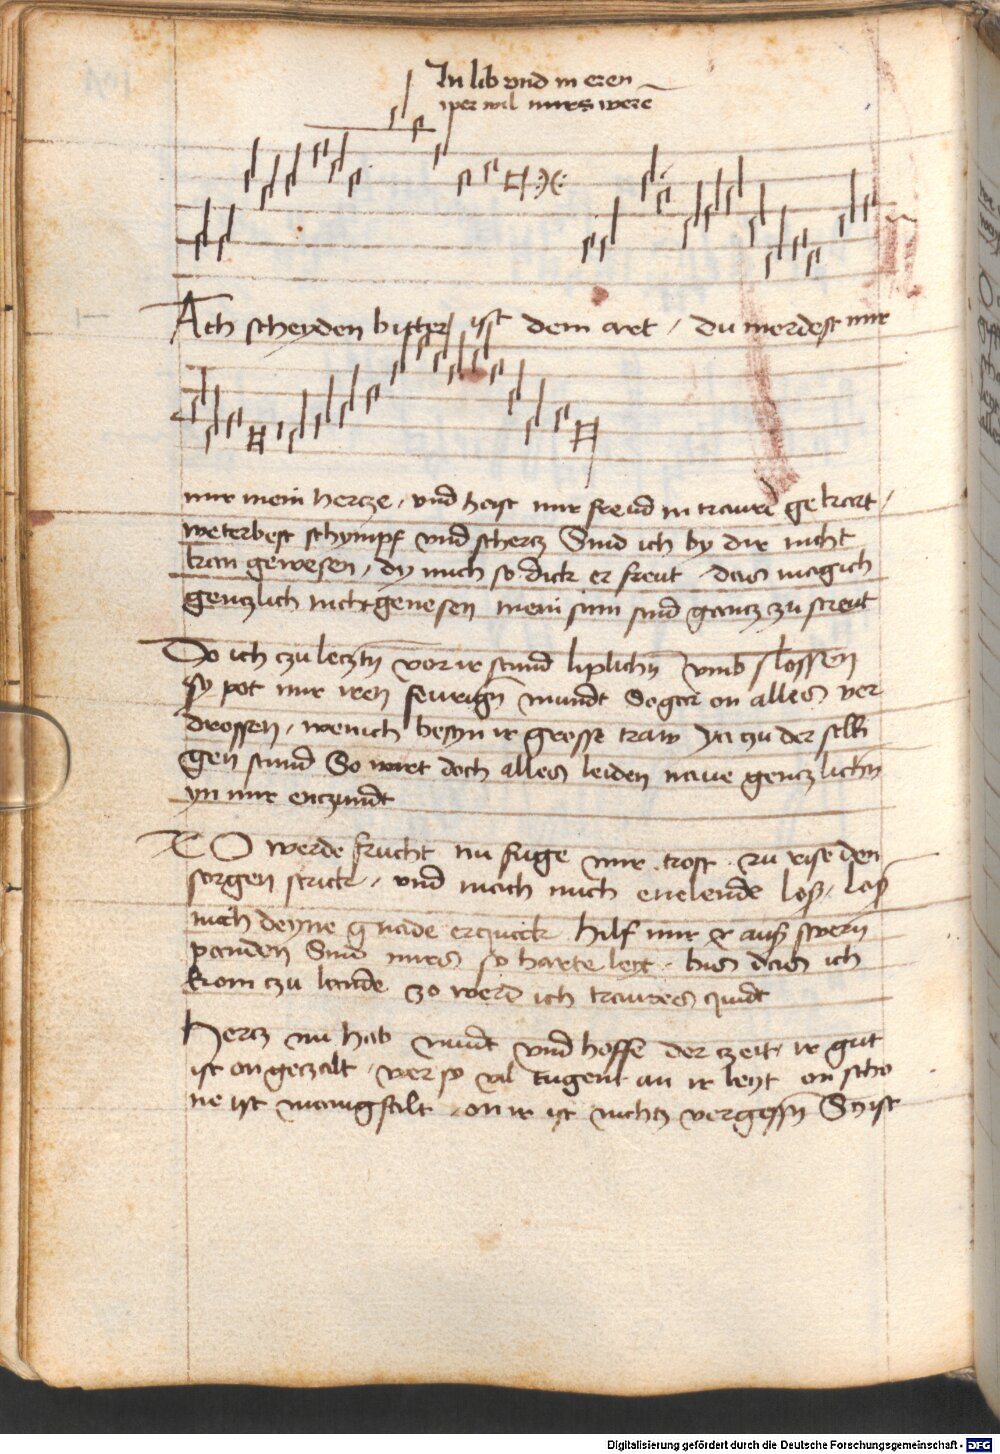 In lib vnd in eren
wer wil mirs weren
Ach scheyden bitter ist dein art / du mordest mir
mir mein hercze / vnd hast mir freud in traurē gekart /
weterbest schympf vnd schercz Sind ich by dir nicht
kan gewesen / dy mich so dick er freut das mag ich
genczlich nicht genesen mein sinn sind gancz zu streut
Do ich czu leczt vor ir stund liplichn vmb slossen
sy pot mir iren feurign mundt So gar on alles ver
drossen / wen ich besyn ir grosse traw Ja czu der selbi
gen stund So wirt doch alles leiden naue genczlichn
yn mir enczundt
O werde frucht nu fuge mir trost zu rise den
sorgen strick / vnd mach mich enelende loß / laß
mich deyne gnade erquick hilf mir auß swern
panden Sind mirs so harte leyt bis das ich
kom czu lande so werd ich traures quidt
Hercz nu hab mudt vnd hoffe der czeit ir gut
ist on geczalt ver so vil tugent an ir leyt on scho
ne ist manigfalt on ir ist nichtz vergessn Sy ist
Digitalisierung gefördert durch die Deutsche Forschungsgemeinschaft - DFG